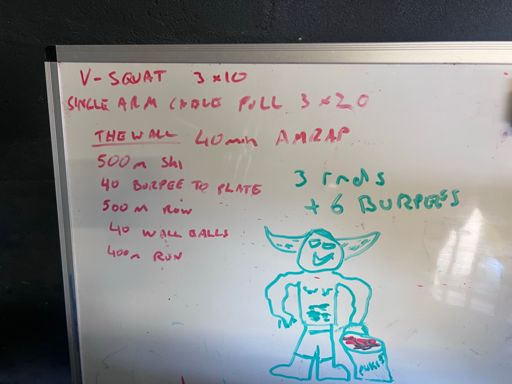 V-SQUAT 3x10
SINGLE ARM CABLE PULL 3x20
THE WALL 40min AMRAP
500m SKI
40 BURPEE TO PLATE
500M ROW
40 WALL BALLS
400m RUN
3 rnds
+ 6 BURPEES